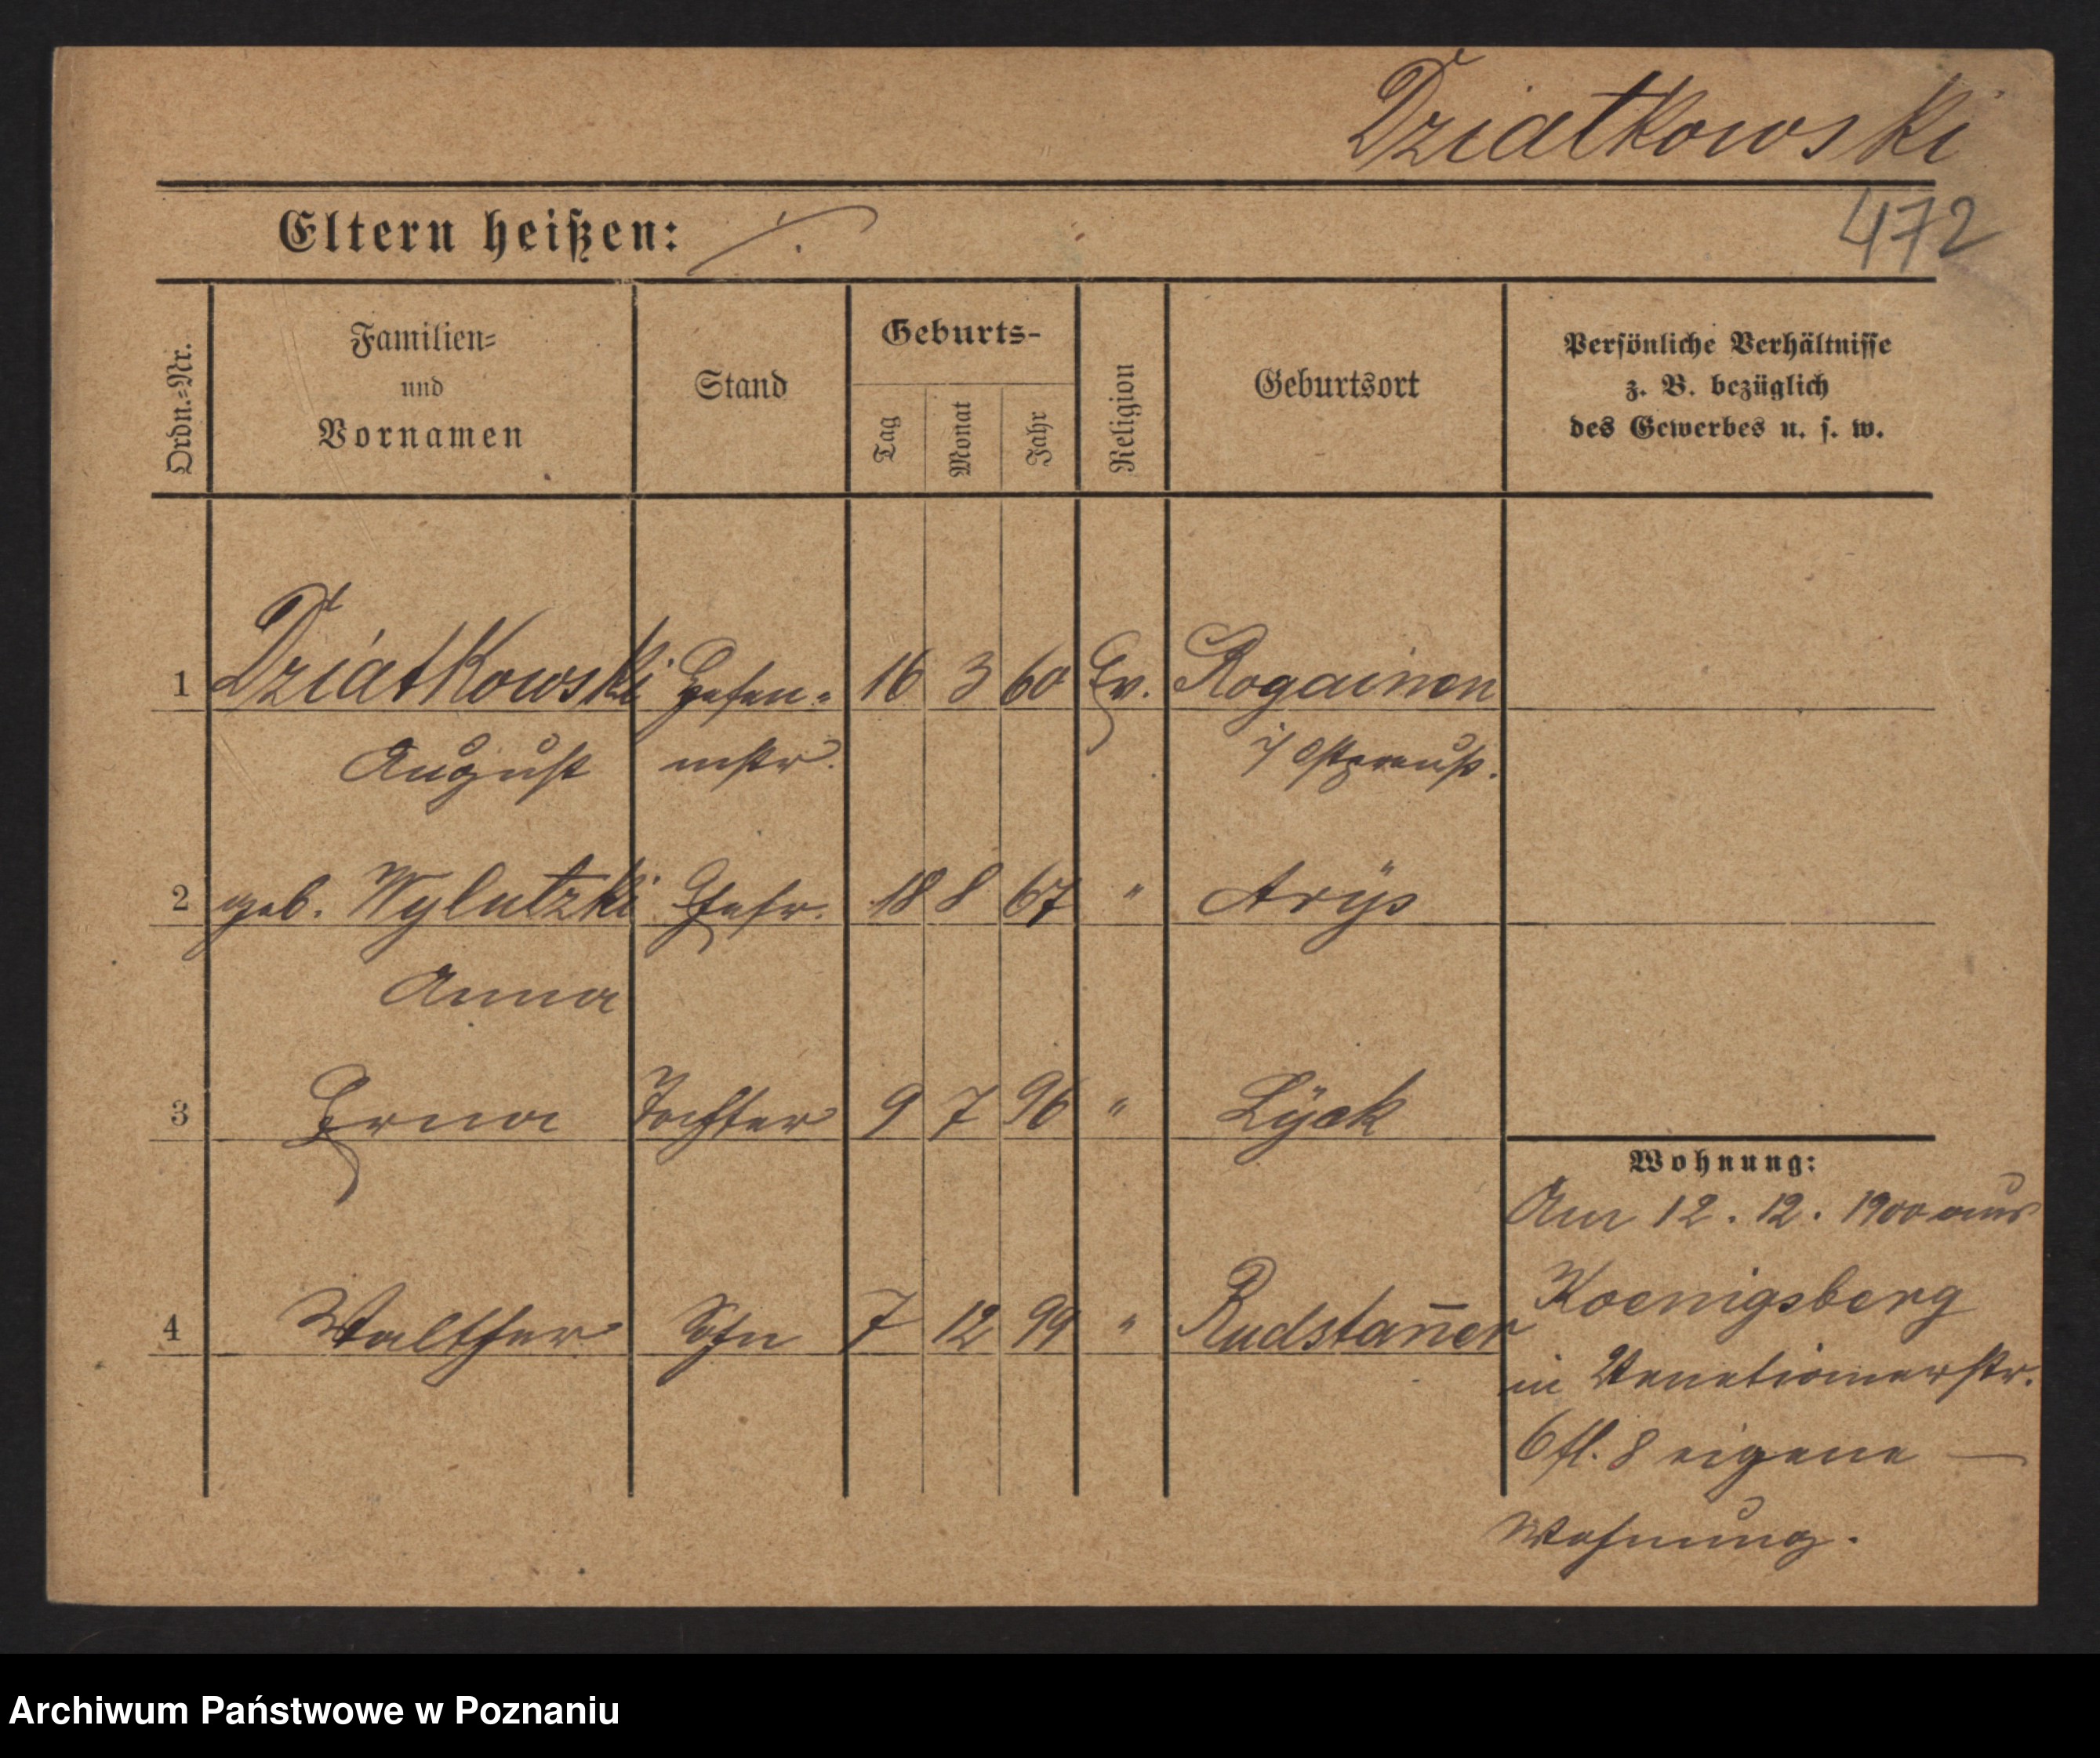 Dziatkowski
472
Eltern heißen: ./.
Ordn.=Nr.
Familien=
und
Vornamen
Stand
Geburts-
Tag
Monat
Jahr
Religion
Geburtsort
Persönliche Verhältnisse
z. B. bezüglich
des Gewerbes u. s. w.
1 Dziatkowski 16 3 60 Ev. Rogainen
August mstr. i/ Ostpreuß.
2 geb. Wylutzki Ehefr. 18 8 67 " Arÿs
Anna
3 Erna Tochter 9 7 96 " Lÿck
Wohnung:
Am 12. 12. 1900 aus
Koenigsberg
4 Walther Sohn 7 12 99 " Rudstan̄en
in Venetianerstr.
6 fl. 8 eigene —
Wohnung.
Archiwum Państwowe w Poznaniu